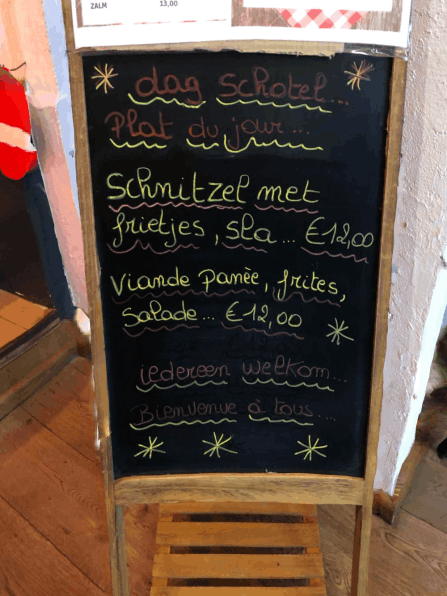 ZALM 13,00
dag schotel...
Plat du jour...
Schnitzel met
frietjes, sla... €12,00
Viande panèe, frites,
Salade... €12,00
iedereen welkom...
Bienvenue à tous...